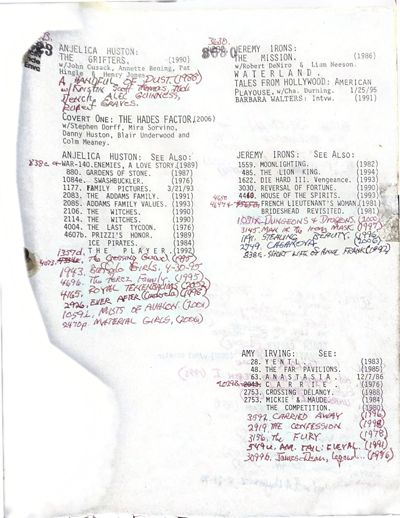 ANJELICA HUSTON:
THE GRIFTERS. (1990)
w/John Cusack, Annette Bening, Pat
Hingle Henry Jones
A HANDFUL OF DUST. (1988)
w/ Kristin Scott Thomas, Judi
Dench, ALEC GUINNESS,
Rupert GRAVES.
Covert One: THE HADES FACTOR, 2006)
w/Stephen Dorff, Mira Sorvino,
Danny Huston, Blair Underwood and
Colm Meaney.
ANJELICA HUSTON: See Also:
838c WAR-140. ENEMIES, A LOVE STORY, (1989)
880. GARDENS OF STONE. (1987)
1084e. SWASHBUCKLER. (1976)
1177. FAMILY PICTURES. 3/21/93
2083. THE ADDAMS FAMILY. (1991)
2085. ADDAMS FAMILY VALUES. (1993)
2106. THE WITCHES. (1990)
2114. THE WITCHES. (1990)
4004. THE LAST TYCOON. (1976)
4607b. PRIZZI'S HONOR. (1989)
ICE PIRATES. (1984)
1357d. THE PLAYER. (1992)
The CROSSING GUARD (1995)
1943. Buffalo GIRLS, 4-30-95
4696. The Perez Family. (1995)
4165. ROYAL TENENBAUMS (2002)
2926. EVER AFTER (Cinderella) (1998)
1059L. MISTS OF AVALON. (2001)
2470p. MATERIAL GIRLS, (2006)
JEREMY IRONS:
THE MISSION. (1986)
w/Robert DeNiro & Liam Neeson.
WATERLAND.
TALES FROM HOLLYWOOD: AMERICAN
PLAYOUSE, w/Cha. Durning. 1/25/95
BARBARA WALTERS: Intvw. (1991)
JEREMY IRONS: See Also:
1559. MOONLIGHTING. (1982)
485. THE LION KING. (1994)
1622. DIE HARD III. Vengeance. (1993)
3030. REVERSAL OF FORTUNE. (1990)
4440. HOUSE OF THE SPIRITS. (1993)
4650 FRENCH LIEUTENANT'S WOMAN. (1981)
BRIDESHEAD REVISITED. (1981)
DUNGEONS & DRAGONS. (2000)
3145. MAN IN THE IRON MASK (1997)
1191. STEALING BEAUTY. (1996)
2549. CASANOVA. (2006)
838E. SHORT LIFE OF ANNE FRANK
AMY IRVING: See:
28. YENTL. (1983)
48. THE FAR PAVILIONS. (1985)
63. ANASTASIA. 12/7/86
2029B. 2043. CARRIE. (1976)
2753. CROSSING DELANCY. (1988)
2753. MICKIE & MAUDE. (1984)
THE COMPETITION. (1980)
3592 CARRIED AWAY (1996)
2919 THE CONFESSION (1998)
3196. The FURY (1978)
549u. AM. TAIL: FIEVAL. (1991)
3099b. James Dean, Legend... (1996)